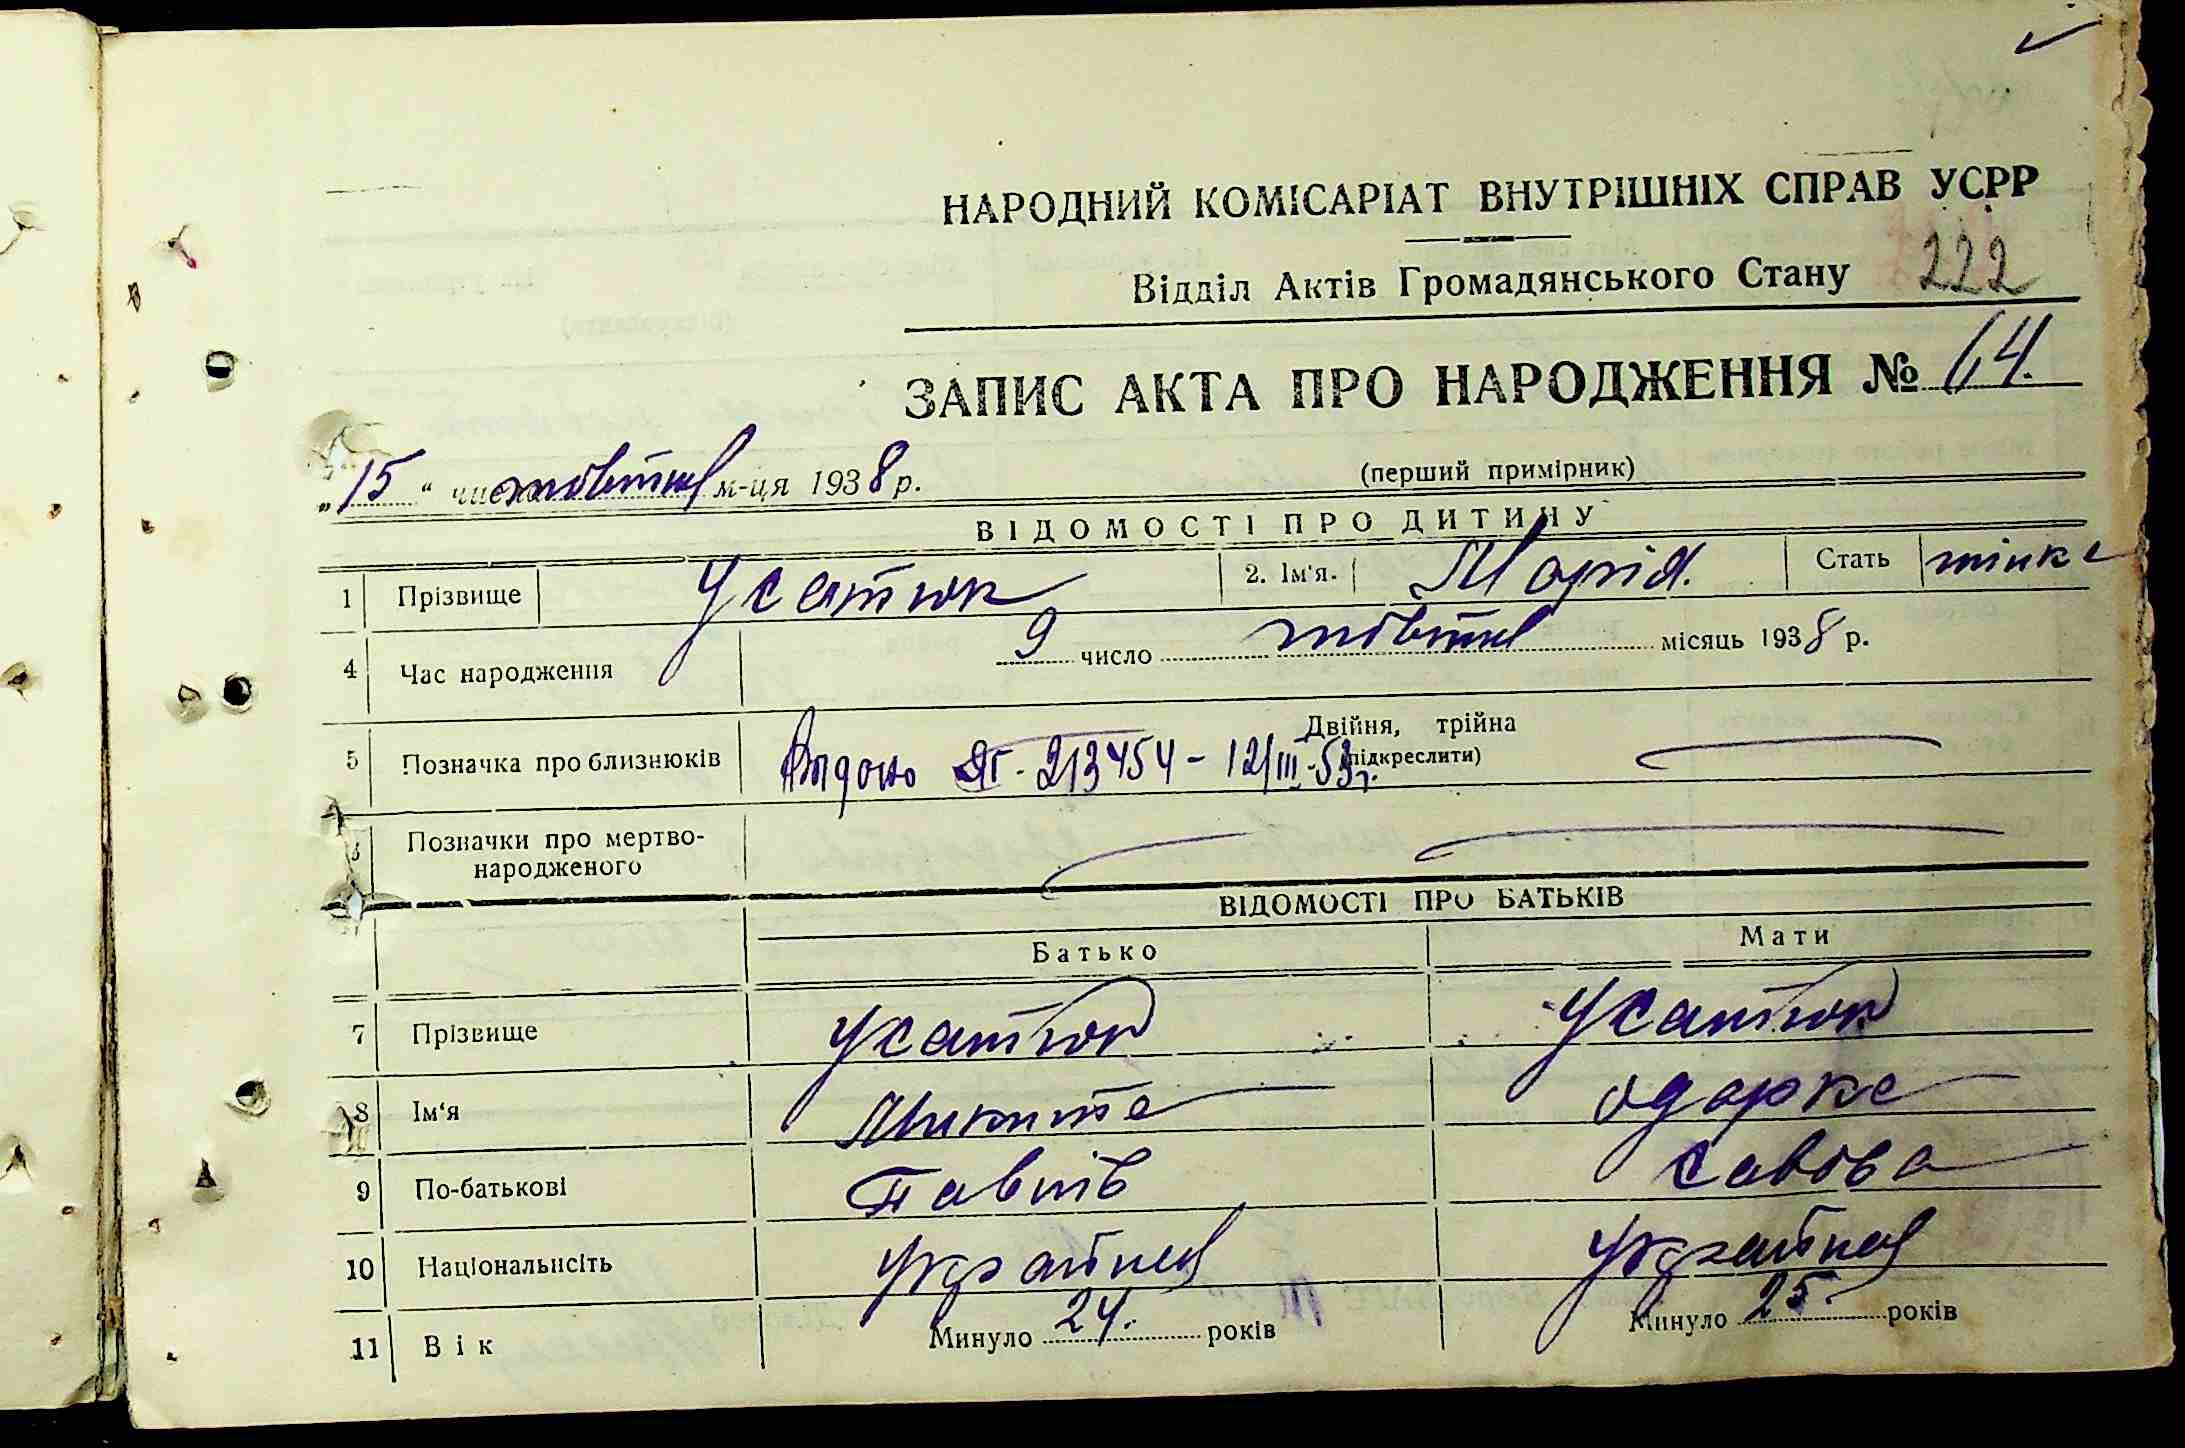 НАРОДНИЙ КОМІСАРІАТ ВНУТРІШНІХ СПРАВ УСРР
Відділ Актів Громадянського Стану 222
ЗАПИС АКТА ПРО НАРОДЖЕННЯ № 64.
„15“ жовтня м-ця 1938 р. (перший примірник)
ВІДОМОСТІ ПРО ДИТИНУ
1 Прізвище Усатюк 2. Ім'я. Марія. Стать жінка
4 Час народження 9 число жовтня місяць 1938 р.
5 Позначка про близнюків Двійня, трійна
(підкреслити)
Выдано 213454 - 12/III-53г.
Позначки про мертво-
народженого
ВІДОМОСТІ ПРО БАТЬКІВ
Батько Мати
7 Прізвище Усатюк Усатюк
8 Ім'я Микита Одарка
9 По-батькові Павлів Савова
10 Національність Україн Україн
11 Вік Минуло 24. років Минуло 25. років